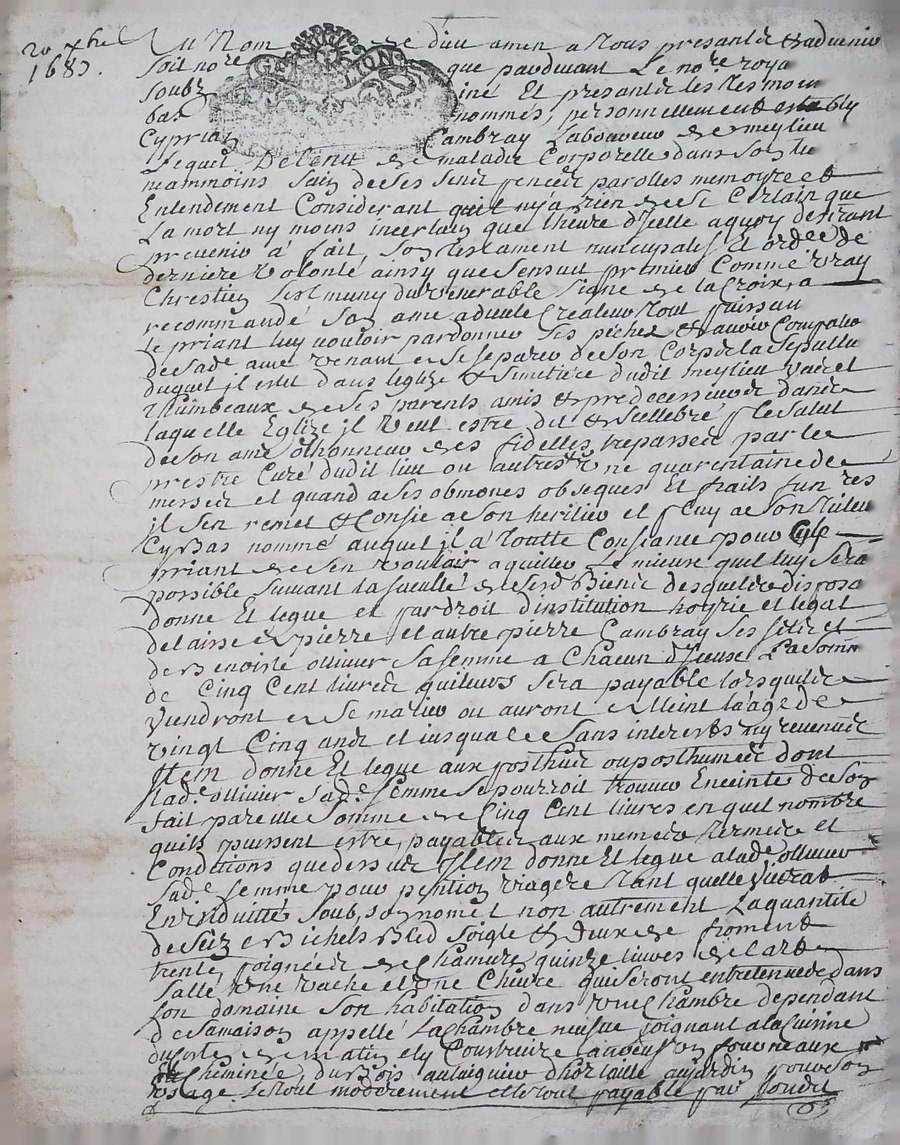 20 xbre
1683.
Au Nom de dieu amen a tous presantz & advenir
soit no.re que pardevant Le no.re royal
soubz iné Et presantz les tesmoin
bas nommes, personnellement estably
Cyprian Cambray Laboureur de meylieu
Lequel Detenu de maladie Corporelle dans son lit
neammoins sain de ses sens pencées parolles memoyre et
Entendement Considerant quil ny a rien de si Certain que
La mort ny moins incertain que lheure d'Icelle a quoy desirant
prevenir à fait son testament nuncupatif Et ordre de
derniere Volonté ainsy que sensuit premier Comme vray
Chrestien sest muny du venerable signe de la Croix, a
recommandé son ame a dieu le Createur tout puissant
le priant luy vouloir pardonner ses pechés & avoir Compation
de sad.e ame venant a se separer de son Corps la sepulture
duquel il eslit dans leglize & simetière dudit meylieu vas et
tumbeaux de ses parents amis & predecesseurs dans
laquelle Eglize il veut estre dit & cellebré p.r le salut
de son ame & honneur des fidelles trepassés par le
prestre Curé dudit lieu ou autres une quarentaine de
messes et quand a ses obmones obseques Et frais funeres
il sen remet & Confie a son heritier et
Cy bas nommé auquel il a toutte Confiance pour
priant de sen vouloir aquitter Le mieux quil luy sera
possible suivant la faculté de ses Biens desquels disposant
donne Et legue et par droit d'institution hoyrie et legat
delaisse a pierre et autre pierre Cambray ses filz et
de Benoiste ollivier sa femme a Chacun d'Iceux La somme
de Cinq Cent livres quileurs sera payable lorsquilz
Viendront a se marier ou auront atteint laage de
vingt Cinq ans et iusqualors sans interests ny revenus
Item donne Et legue aux posthume ou posthumes dont
lad.e ollivier sad.e femme se pourroit trouver Enceinte de son
fait pareille somme de Cinq Cent livres en quel nombre
quils puissent estre, payables aux memes termes et
Conditions que dessus Item donne Et legue a lad.e ollivier
sad.e femme pour pention viagere tant quelle vivra
En viduitté soub son nom et non autrement La quantité
de seize Bichets Bled soigle & deux de froment
trente poignées de Chamure, quinze livres de lard
sallé une vache et une Chevre qui seront entretenues dans
son domaine son habitation dans une Chambre dependant
de sa maison appellé La Chambre neufve joignant a la Cuisine
du costé de matin ely Construire un fourneaux
Cheminée, du Bois d'hortaille au jardin pour son
usage Le tout modérément payable par